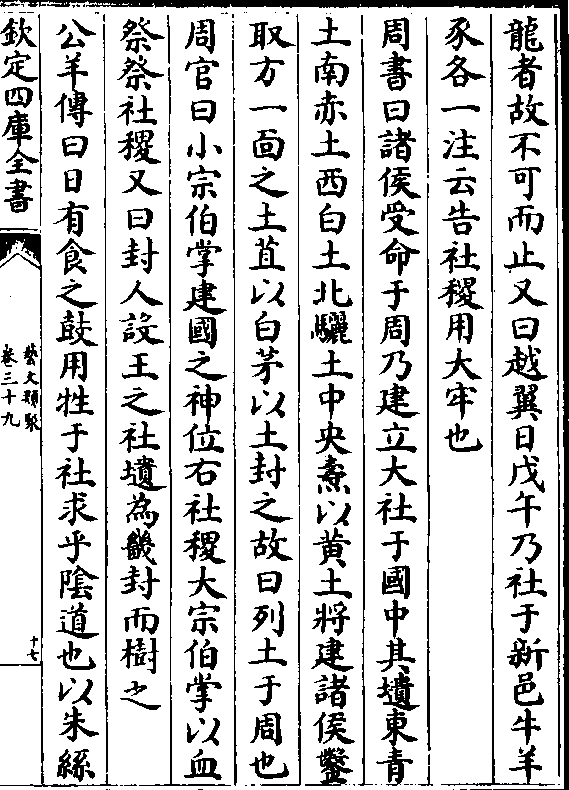 龍者故不可而止又曰越翼日戊午乃社于新邑牛羊
豕各一注云告社稷用大牢也
周書曰諸侯受命于周乃建立大社于國中其壝東青
土南赤土西白土北驪土中央燾以黄土將建諸侯鑿
取方一面之土苴以白茅以土封之故曰列土于周也
周官曰小宗伯掌建國之神位右社稷大宗伯掌以血
祭祭社稷又曰封人設王之社壝為畿封而樹之
公羊傳曰日有食之鼓用牲于社求乎陰道也以朱絲
欽定四庫全書
藝文類聚
卷三十九
十七